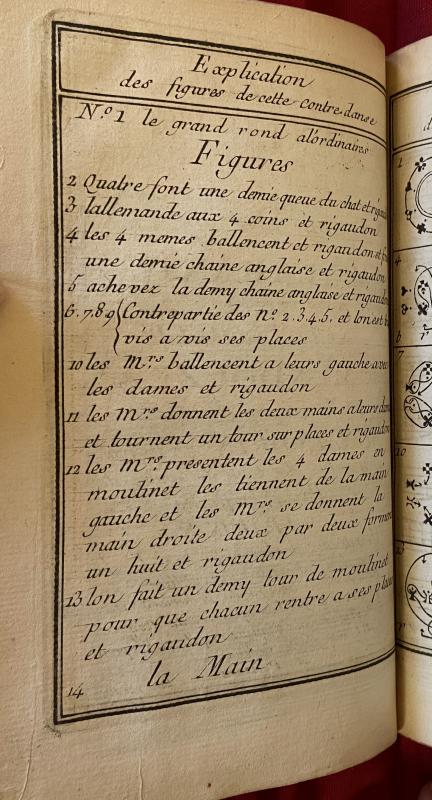 Explication
des figures de cette contre danse
N.º 1 le grand rond alórdinaires
Figures
2 Quatre font une demie queue du chat et
3 lallemande aux 4 coins et rigaudon
4 les 4 memes ballencent et rigaudon et
une demie chaine anglaise et rigaudon
5 achevez la demy chaine anglaise et rigaudon
6.7.8.9 { Contrepartie des nº 2.3.4.5. et lon est
vis a vis ses places
10 les Mrs ballencent a leurs gauche avec
les dames et rigaudon
11 les Mrs donnent les deux mains a leurs
et tournent un tour sur places et rigaudon
12 les Mrs presentent les 4 dames en
moulinet les tiennent de la main
gauche et les Mrs se donnent la
main droite deux par deux
un huit et rigaudon
13 lon fait un demy tour de moulinet
pour que chacun rentre a ses
et rigaudon
14 la Main
1
4
6
7
10
13